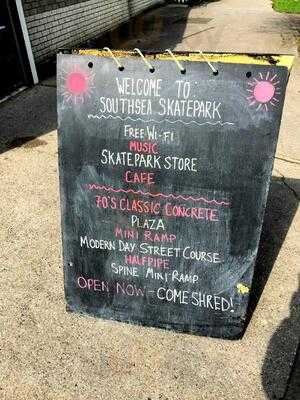 WELCOME TO:
SOUTHSEA SKATEPARK
FREE WI-FI
MUSIC
SKATEPARK STORE
CAFE
70'S CLASSIC CONCRETE
PLAZA
MINI RAMP
MODERN DAY STREET COURSE
HALFPIPE
SPINE MINI RAMP
OPEN NOW - COME SHRED!